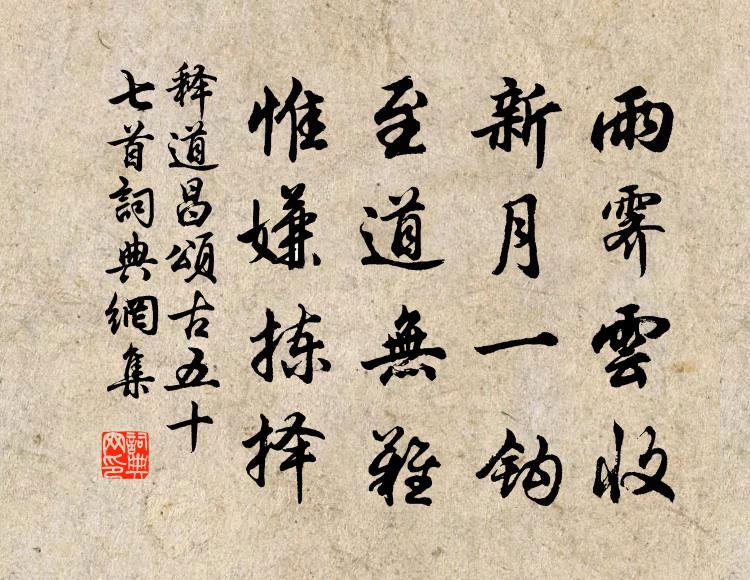 雨霽雲收
新月一鈎
至道無難
惟嫌拣择
释道昌頌古五十
七首詞典網集
詞典
网印